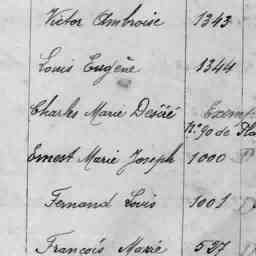 Victor Ambroise 1343
Louis Eugène 1344
Charles Marie Désiré Exempt
N. 90 de Pla
Ernest Marie Joseph 1000
Fernand Louis 1001
François Marie 537